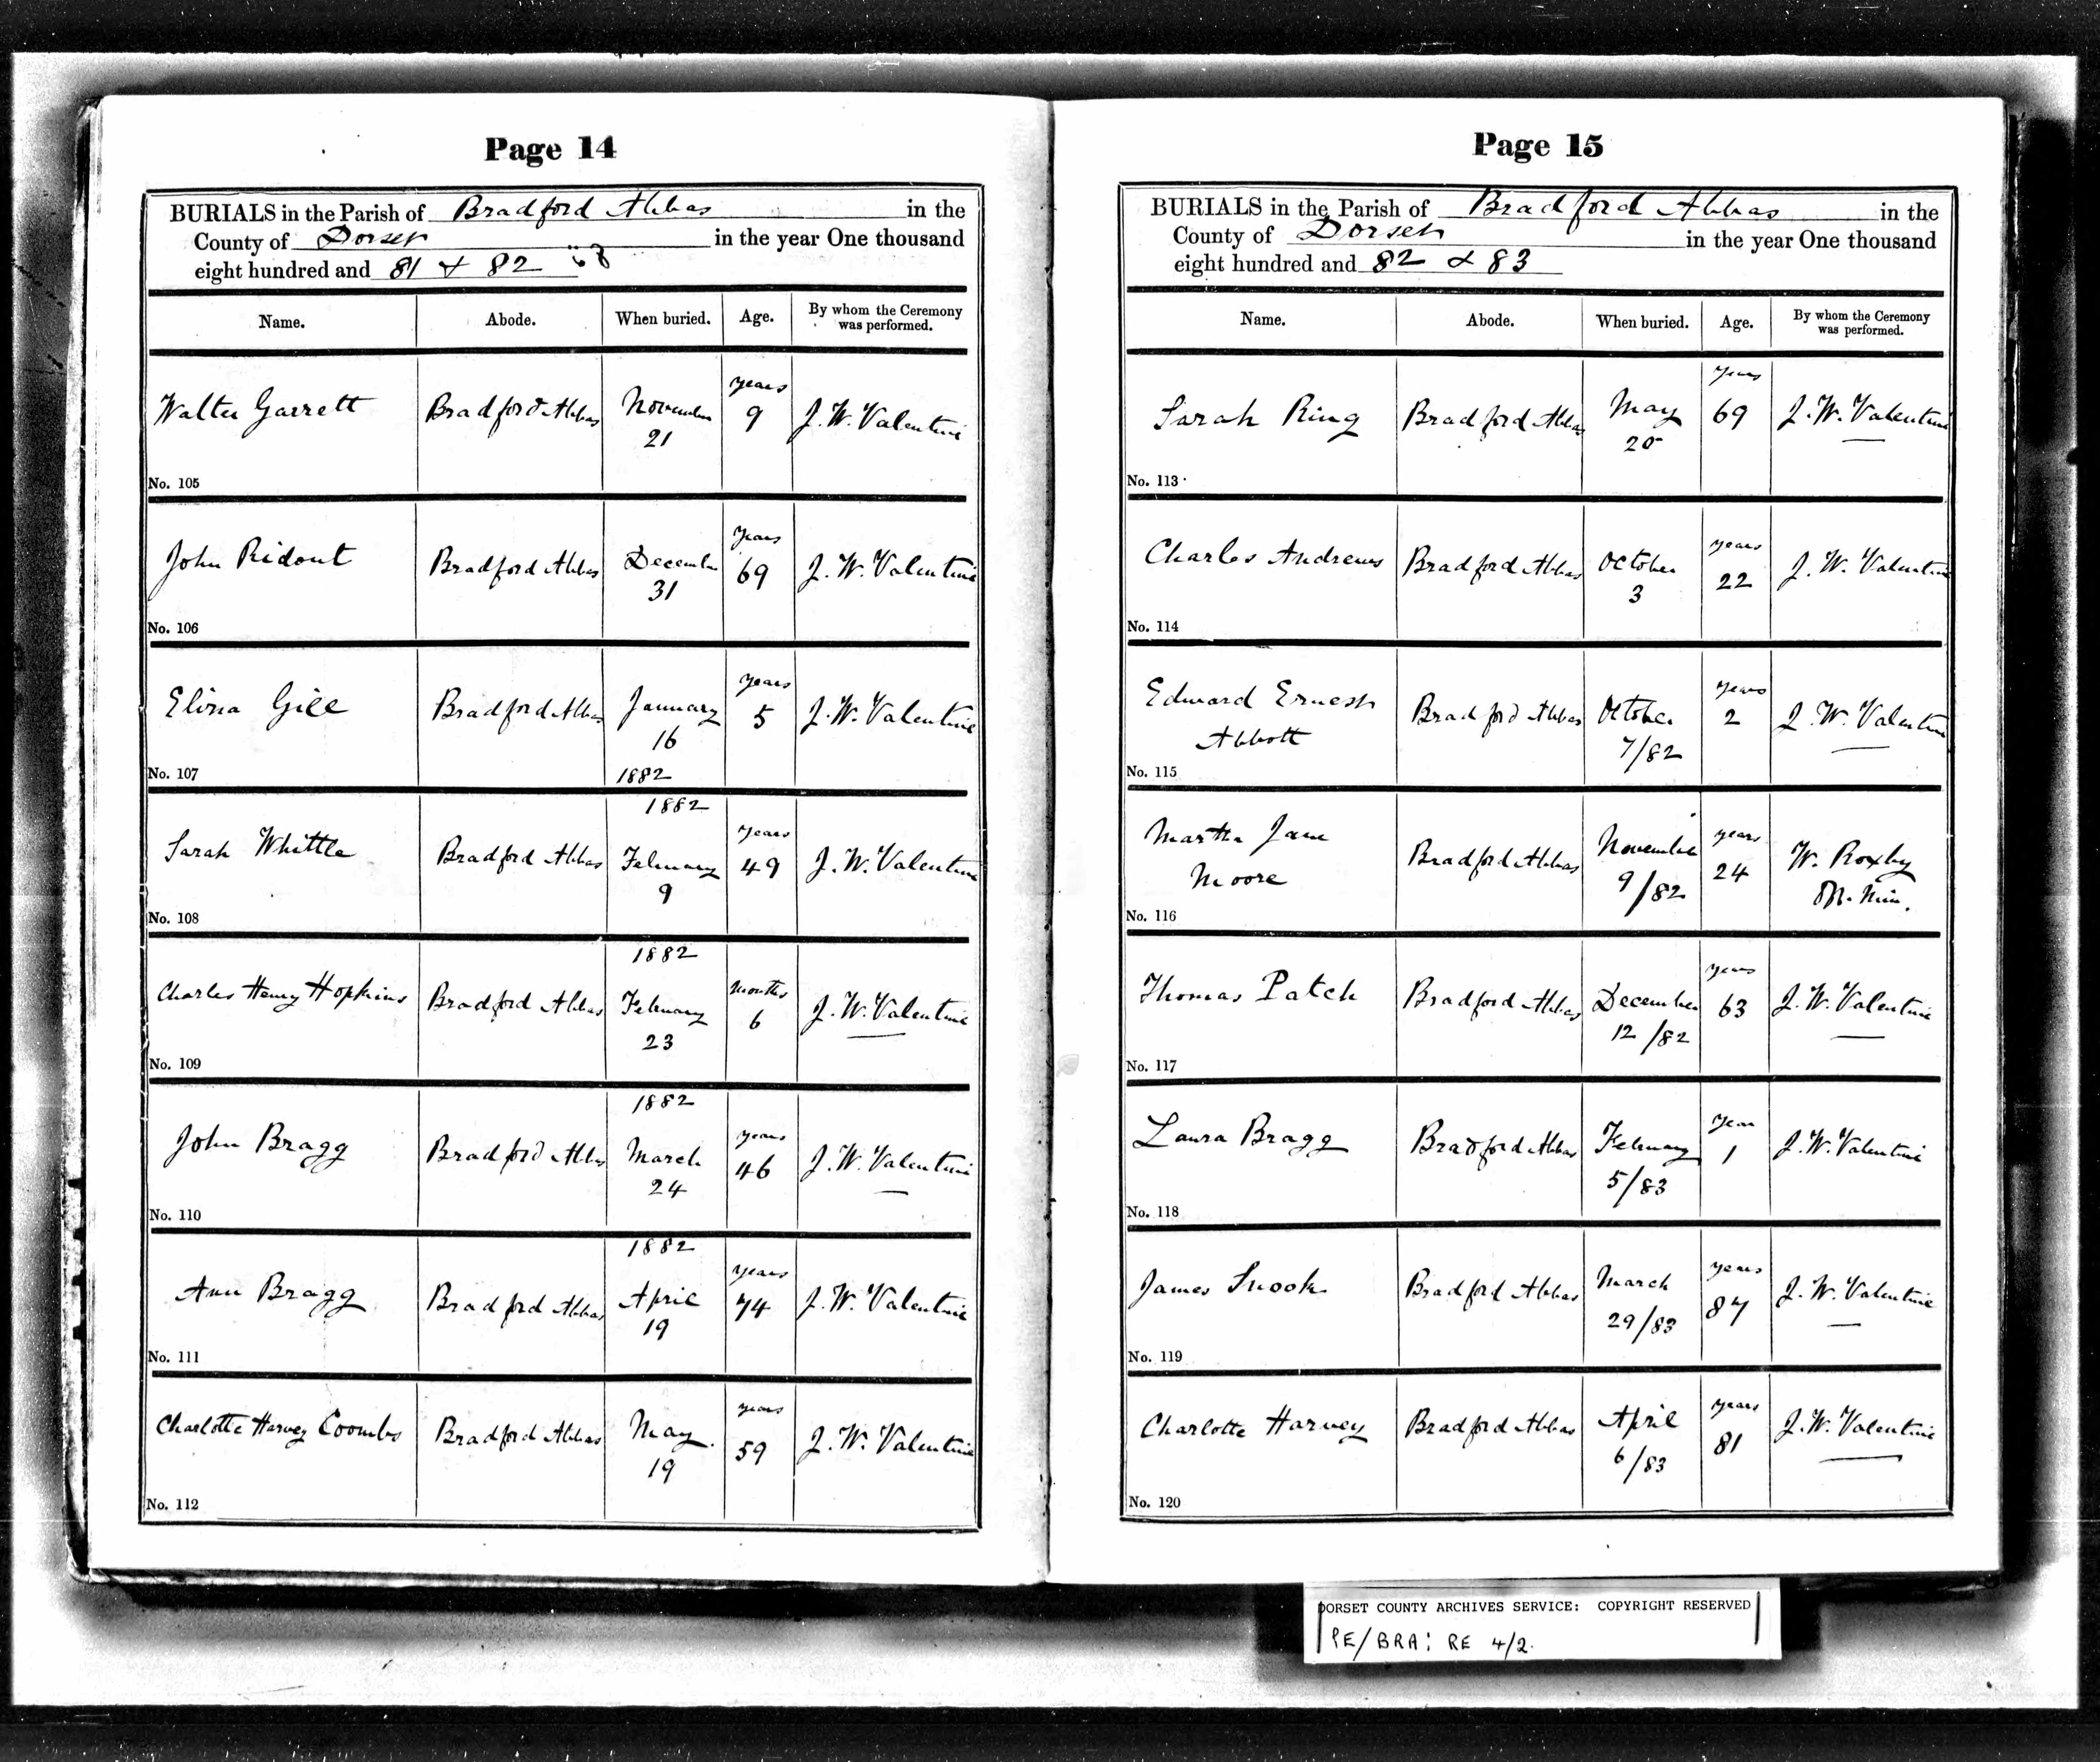 Page 14
BURIALS in the Parish of Bradford Abbas in the
County of Dorset in the year One thousand
eight hundred and 81 & 82
Name. Abode. When buried. Age. By whom the Ceremony was performed.
Walter Garrett Bradford Abbas November 21 years 9 J. W. Valentine
No. 105
John Ridout Bradford Abbas December 31 years 69 J. W. Valentine
No. 106
Eliza Gill Bradford Abbas January 16 1882 years 5 J. W. Valentine
No. 107
Sarah Whittle Bradford Abbas 1882 February 9 years 49 J. W. Valentine
No. 108
Charles Henry Hopkins Bradford Abbas 1882 February 23 months 6 J. W. Valentine
No. 109
John Bragg Bradford Abbas 1882 March 24 years 46 J. W. Valentine
No. 110
Ann Bragg Bradford Abbas 1882 April 19 years 74 J. W. Valentine
No. 111
Charlotte Harvey Coombs Bradford Abbas May 19 years 59 J. W. Valentine
No. 112
Page 15
BURIALS in the Parish of Bradford Abbas in the
County of Dorset in the year One thousand
eight hundred and 82 & 83
Name. Abode. When buried. Age. By whom the Ceremony was performed.
Sarah Ring Bradford Abbas May 20 years 69 J. W. Valentine
No. 113
Charles Andrews Bradford Abbas October 3 years 22 J. W. Valentine
No. 114
Edward Ernest Abbott Bradford Abbas October 7/82 years 2 J. W. Valentine
No. 115
Martha Jane Moore Bradford Abbas November 9/82 years 24 W. Roxby Min.
No. 116
Thomas Patch Bradford Abbas December 12/82 years 63 J. W. Valentine
No. 117
Laura Bragg Bradford Abbas February 5/83 year 1 J. W. Valentine
No. 118
James Snook Bradford Abbas March 29/83 years 87 J. W. Valentine
No. 119
Charlotte Harvey Bradford Abbas April 6/83 years 81 J. W. Valentine
No. 120
DORSET COUNTY ARCHIVES SERVICE: COPYRIGHT RESERVED
PE/BRA: RE 4/2.